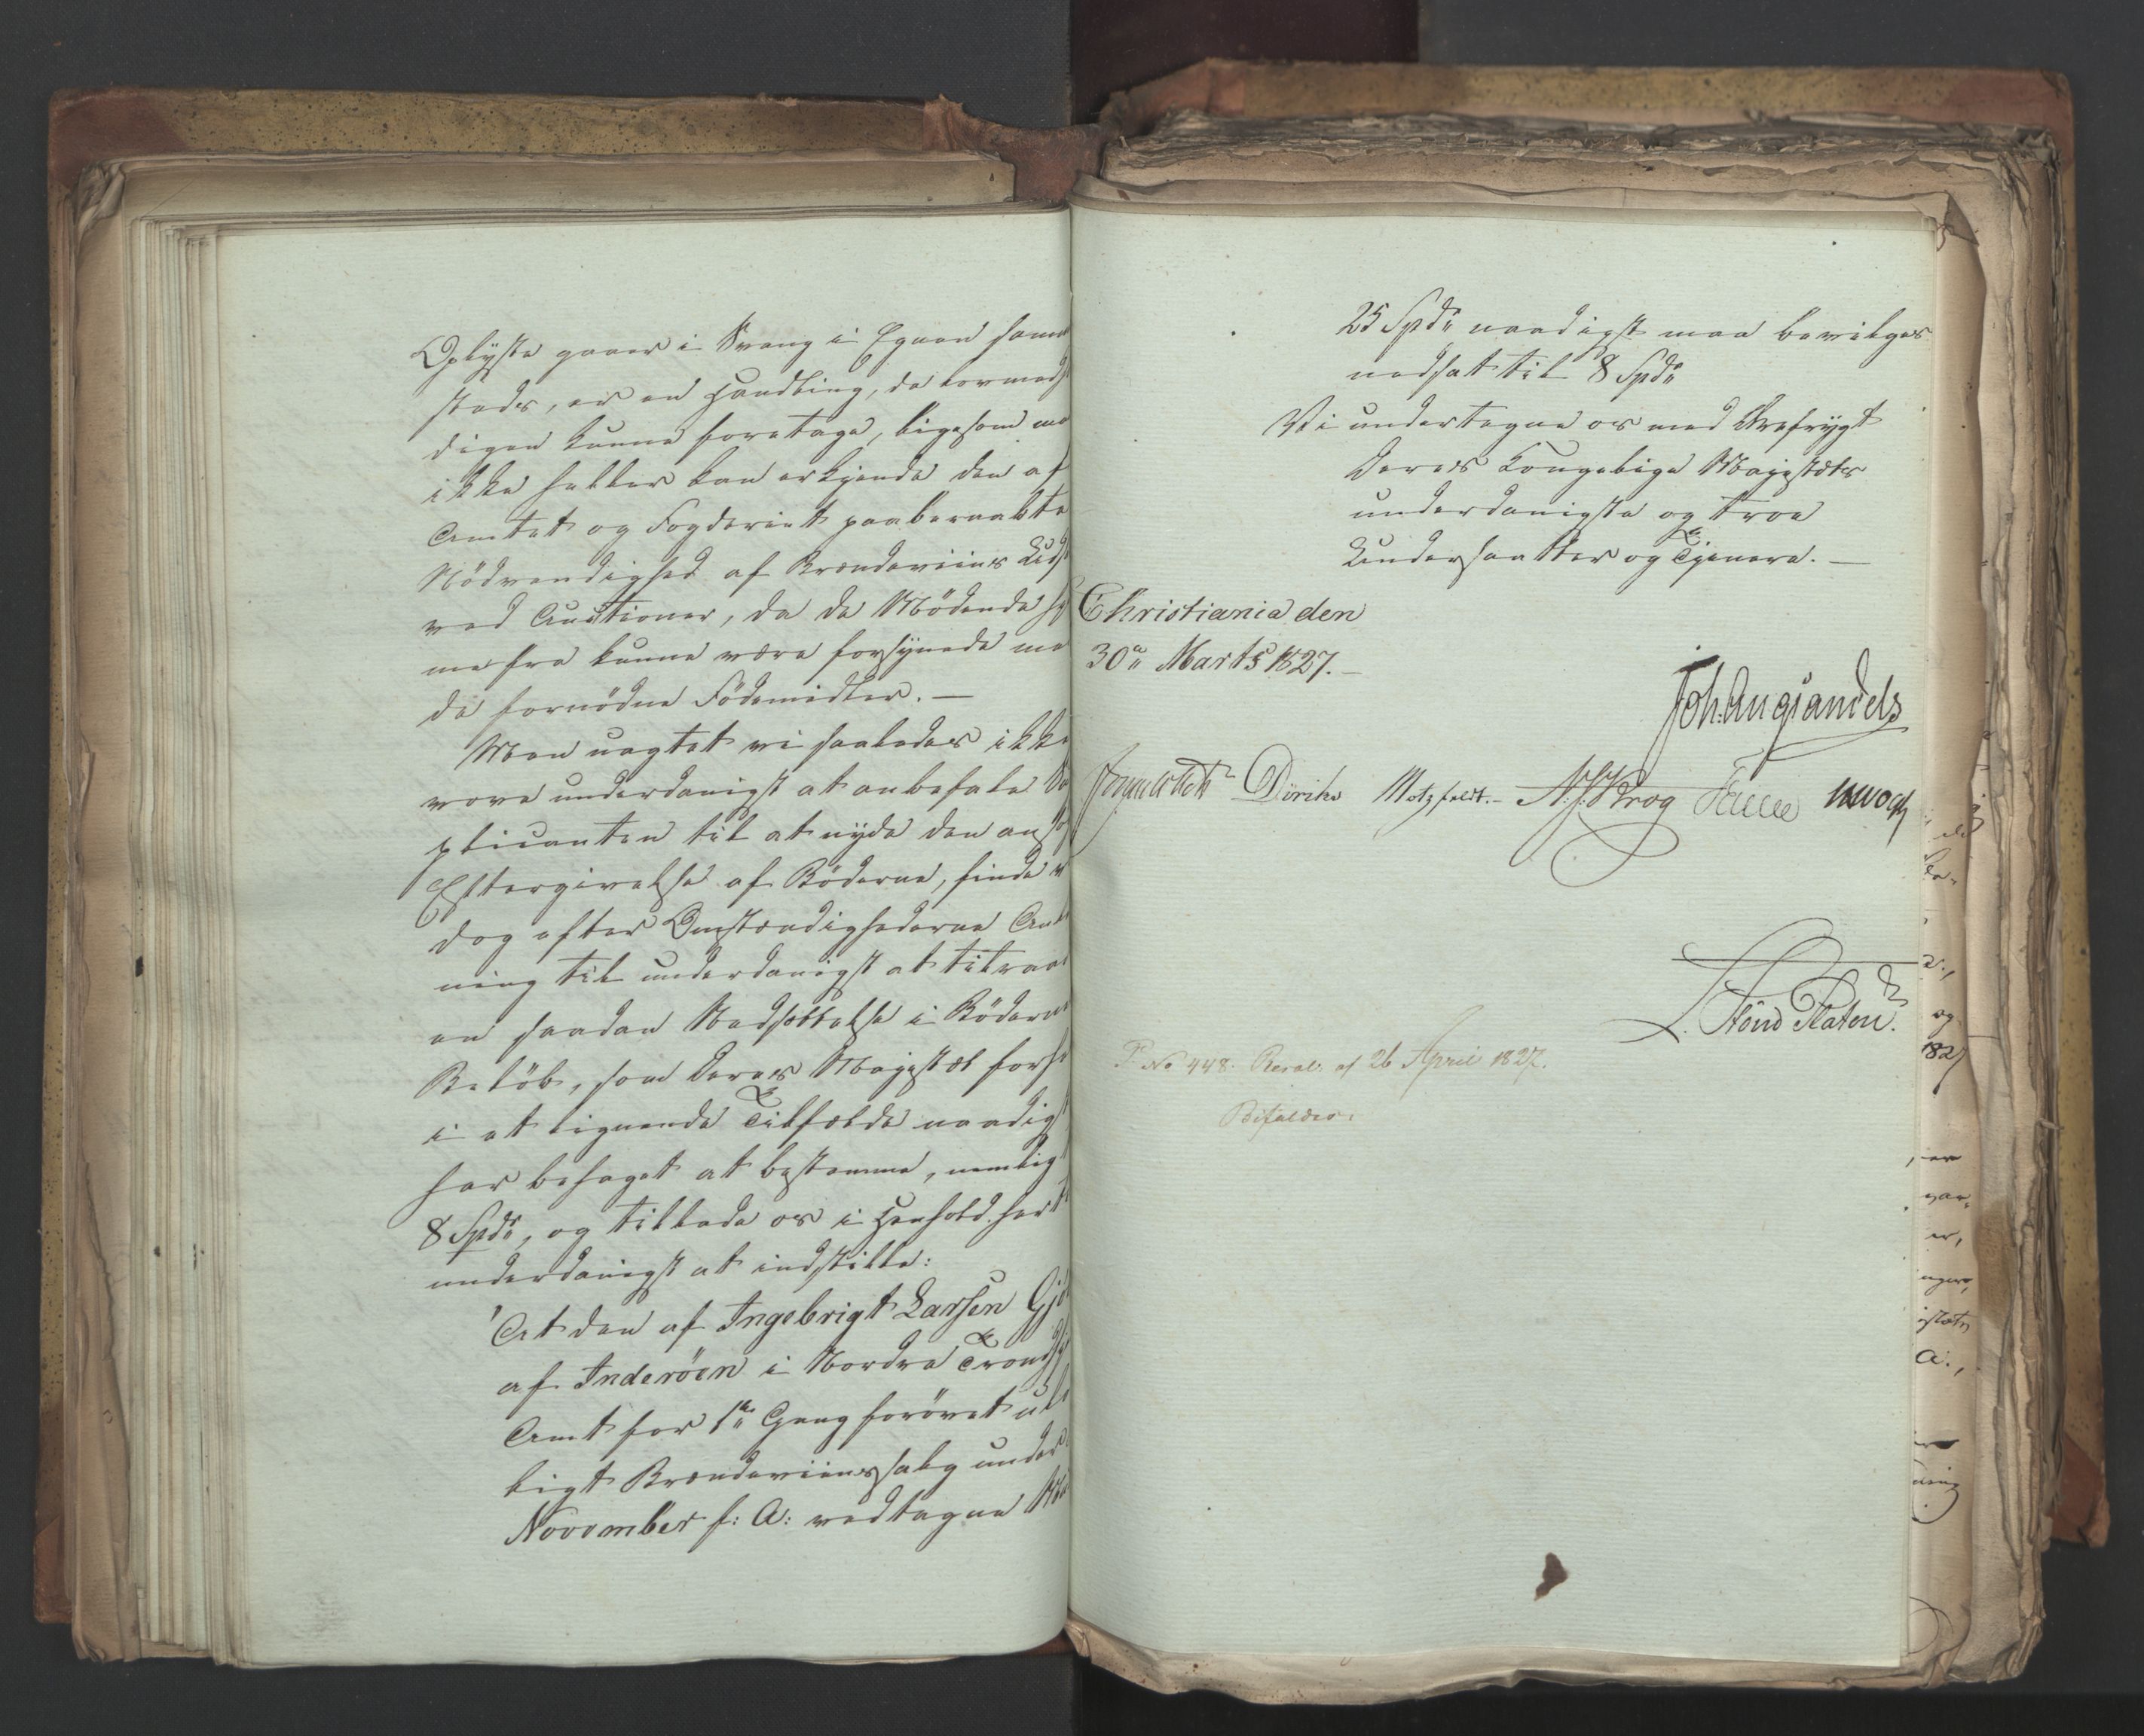 Oplyste gaaer i Svang i Egnen samme
steds, er en Handling, de lovmeds
digen kunne foretage, ligesom ma
ikke heller kan erkjende den af
Amtet og Fogderiet paaberaabte
Nödvendighed af Brændeviins Uds
ved Auctioner, da de Mödende hj
me fra kunne være forsynede me
de fornödne Födemidler. —
Men uagtet vi saaledes ikke
vove underdanigst at anbefale Su
plicanten til at nyde den ansö
Eftergivelse af Böderne, finde v
dog efter Omstændighederne Anl
ning til underdanigst at tilraad
en saadan Nedsættelse i Bödernes
Belöb, som Deres Majestæt forh
i et lignende Tilfælde naadigst
har behaget at bestemme, nemlig
8 Spdr, og tillade os i Henhold hert
underdanigst at indstille:
At den af Ingebrigt Larsen Gjö
af Inderöen i Nordre Trondhj
Amt for 1ste Gang forövet ulo
ligt Brændeviinssalg under
November f: A: vedtagne Mu
25 Spdr naadigst maa bevilges
nedsat til 8 Spdr
Vi undertegne os med Ærefrygt
Deres Kongelige Majestæts
underdanigste og troe
Undersaatter og Tjenere. —
Christiania den
30te Marts 1827. —
Joh: Aug: Sandels
Jonas Collett Diriks Motzfeldt. N. J. Krog Fasting
L. Stoud Platou.
P. No 448. Resol: af 26 April 1827.
Bifaldes.
1827